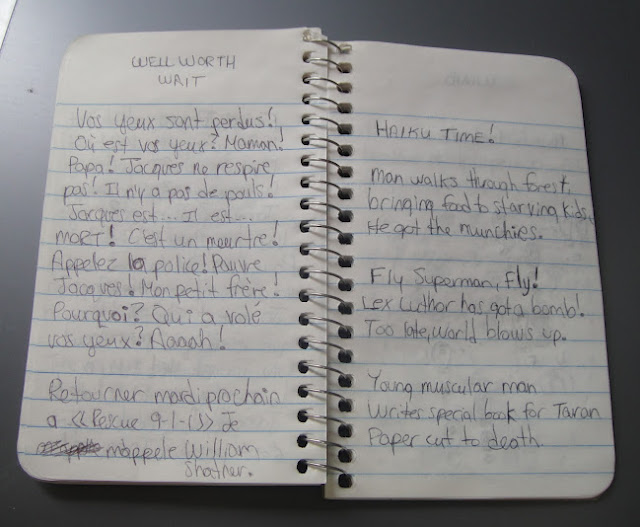 WELL WORTH
WAIT
Vos yeux sont perdus!
Où est vos yeux? Maman!
Papa! Jacques ne respire
pas! Il n'y a pas de pouls!
Jacques est... Il est...
MORT! C'est un meurtre!
Appelez la police! Pauvre
Jacques! Mon petit frère!
Pourquoi? Qui a volé
vos yeux? Aaaah!
Retourner mardi prochain
a << Rescue 9-1-1>> Je
m'appele William
Shatner.
HAIKU TIME!
Man walks through forest,
bringing food to starving kids,
He got the munchies.
Fly Superman, Fly!
Lex Luthor has got a bomb!
Too late, world blows up.
Young muscular man
Writes special book for Taran
Paper cut to death